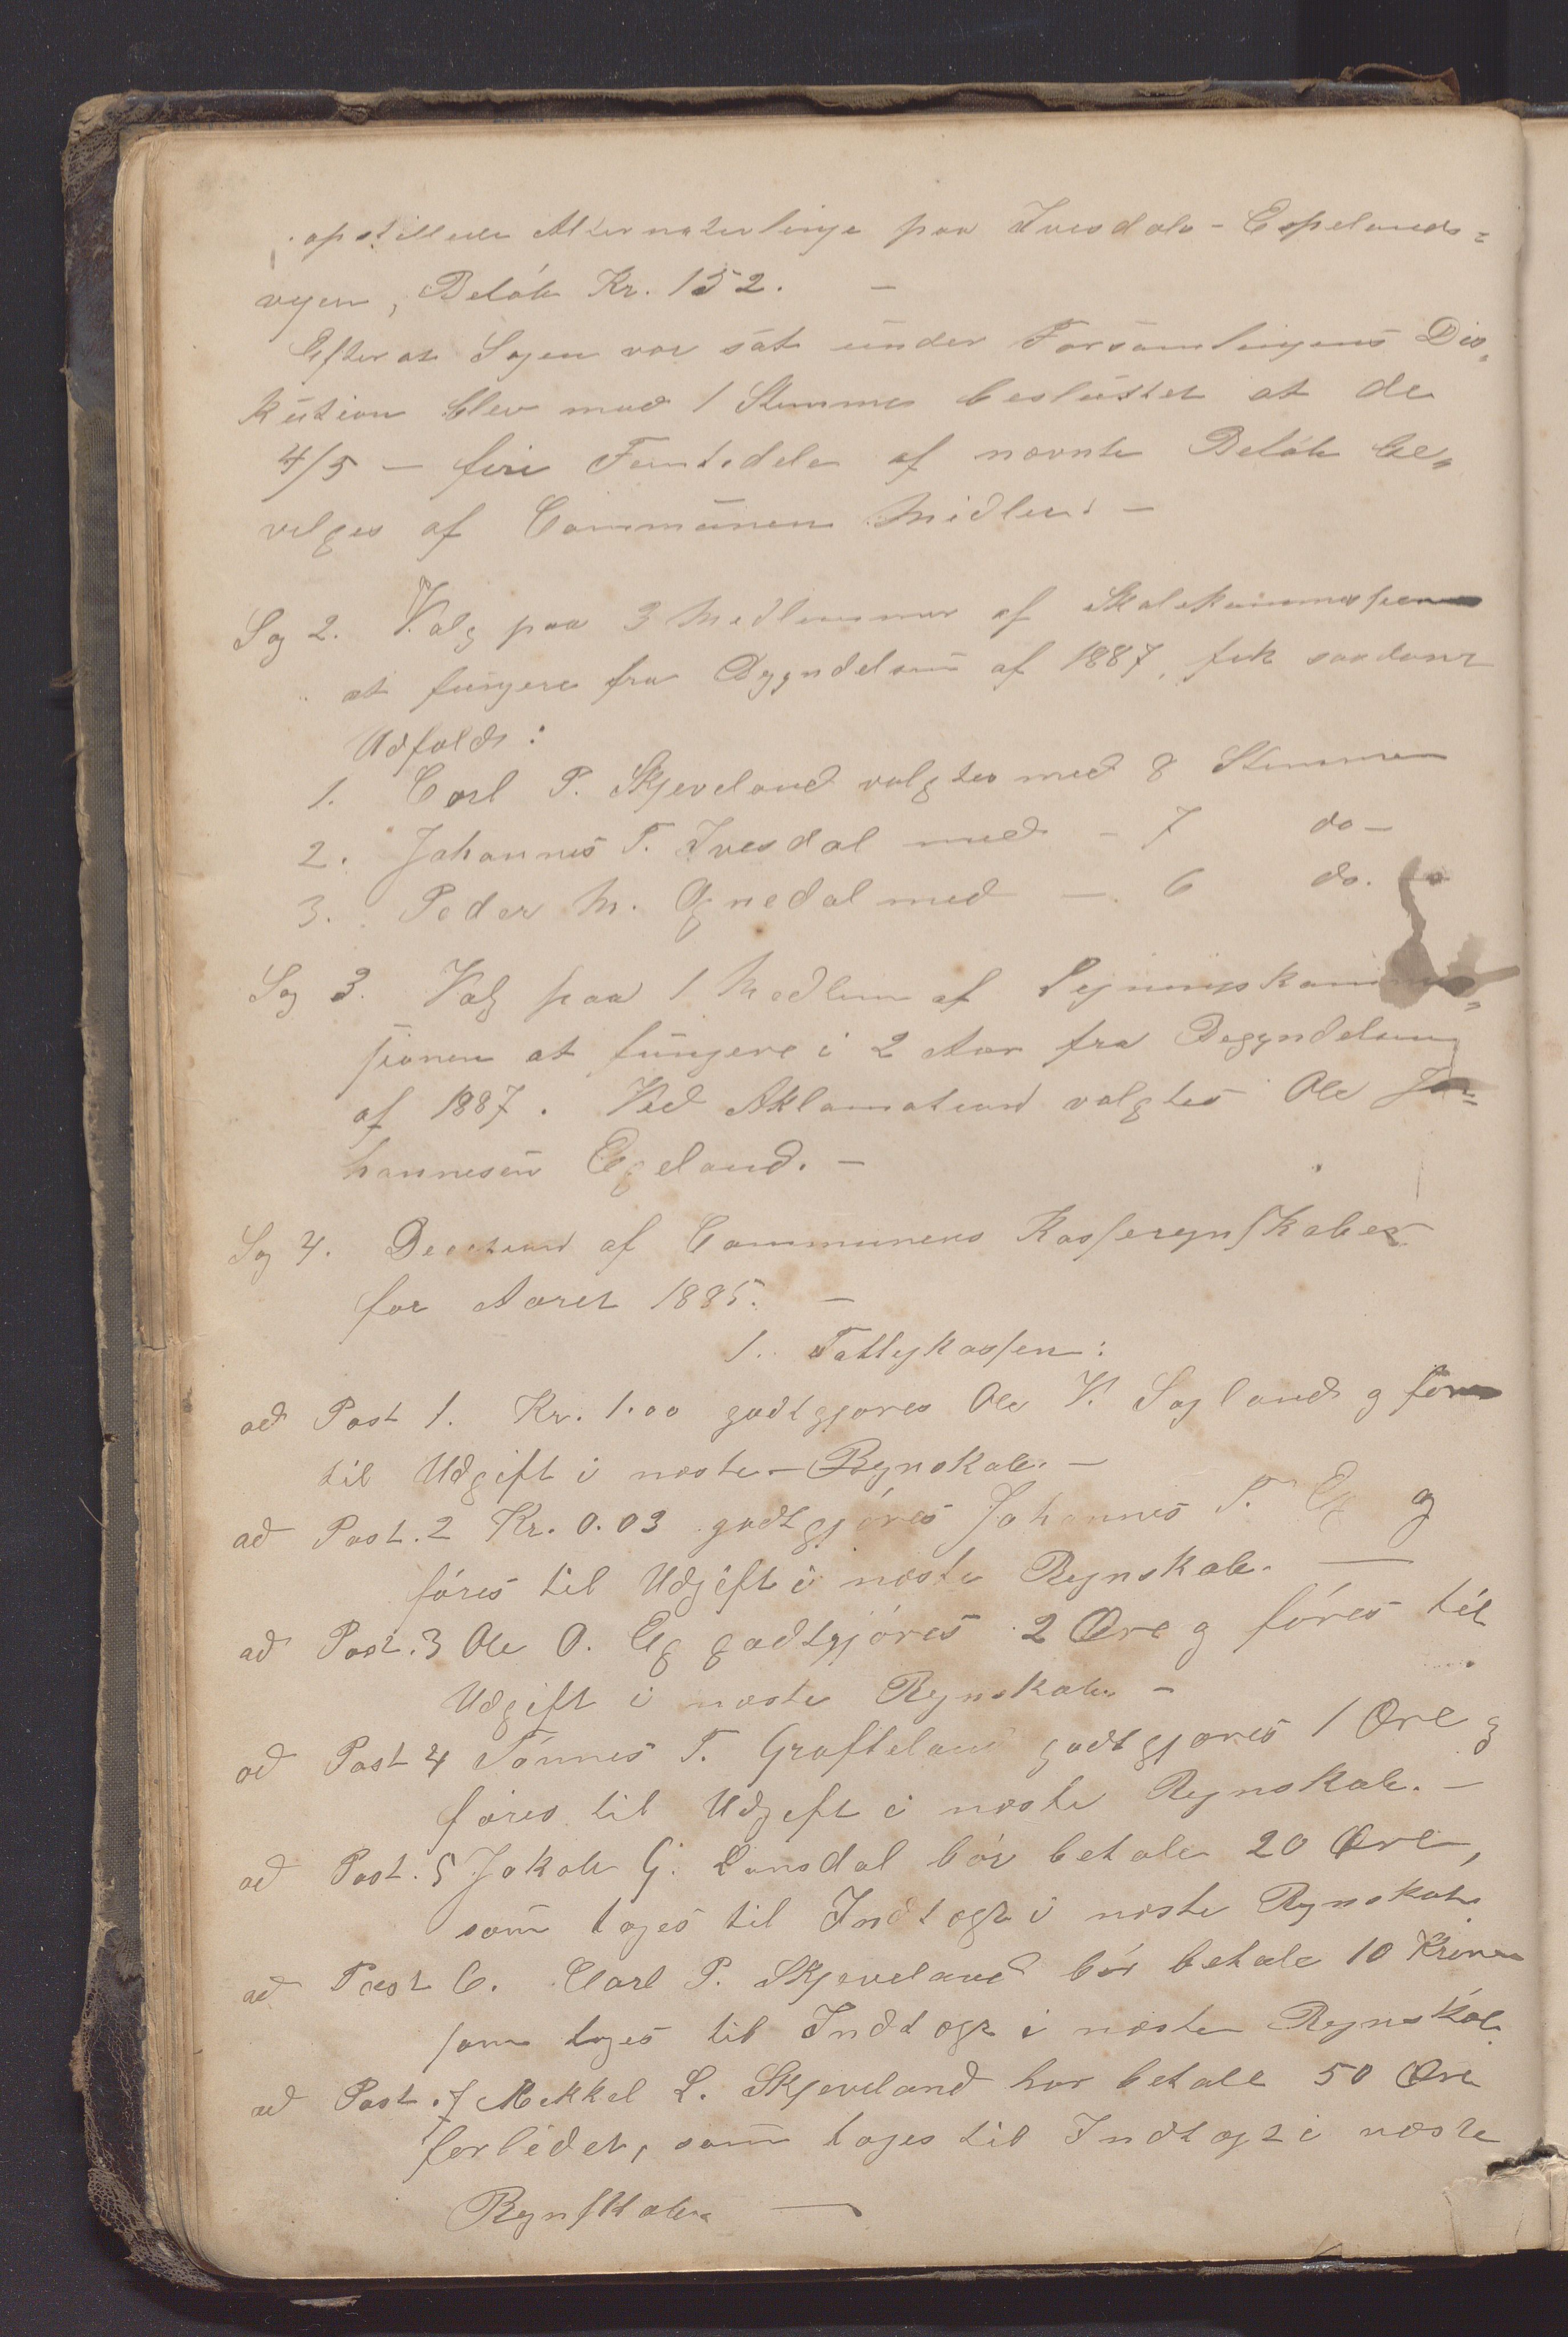 opstillede Alternativlinje paa Ivesdals-Espelands-
vejen, Beløb Kr. 152. —
Efter at Sagen var sat under Forsamlingens Dis-
kution blev mod 1 Stemme besluttet at de
4/5 — fire Femtedele af nævnte Beløb be-
vilges af Communen Midler. —
Sag 2. Valg paa 3 Medlemmer af Skolekommissionen
at fungere fra Begyndelsen af 1887, fik saadant
Udfald:
1. Carl P. Skjeveland valgtes med 8 Stemmer
2. Johannes T. Ivesdal med - 7 do —
3. Peder M. Ognedal med — 6 do. —
Sag 3. Valg paa 1 Medlem af Ligningskommis-
sionen at fungere i 2 Aar fra Begyndelsen
af 1887. Ved Aklamation valgtes Ole Jo-
hannesen Egeland. —
Sag 4. Decision af Communens Kasseregnskaber
for Aaret 1885. —
1. Fattigkassen:
ad Post 1. Kr. 1.00 godtgjøres Ole V. Sagland og føres
til Udgift i næste Regnskab. —
ad Post. 2 Kr. 0.03 godtgjøres Johannes T. Eg og
føres til Udgift i næste Regnskab. —
ad Post. 3 Ole O. Eg godtgjøres 2 Øre og føres til
Udgift i næste Regnskab. —
ad Post 4 Tønnes T. Grafteland godtgjøres 1 Øre og
føres til Udgift i næste Regnskab. —
ad Post. 5 Jakob G. bør betale 20 Øre,
som tages til Indtægt i næste Regnskab
ad Post 6. Carl P. Skjeveland bør betale 10 Kroner
som tages til Indtægt i næste Regnskab.
ad Post. 7 Mikkel L. Skjeveland har betalt 50 Øre
forlidet, som tages til Indtægt i næste
Regnskab. —